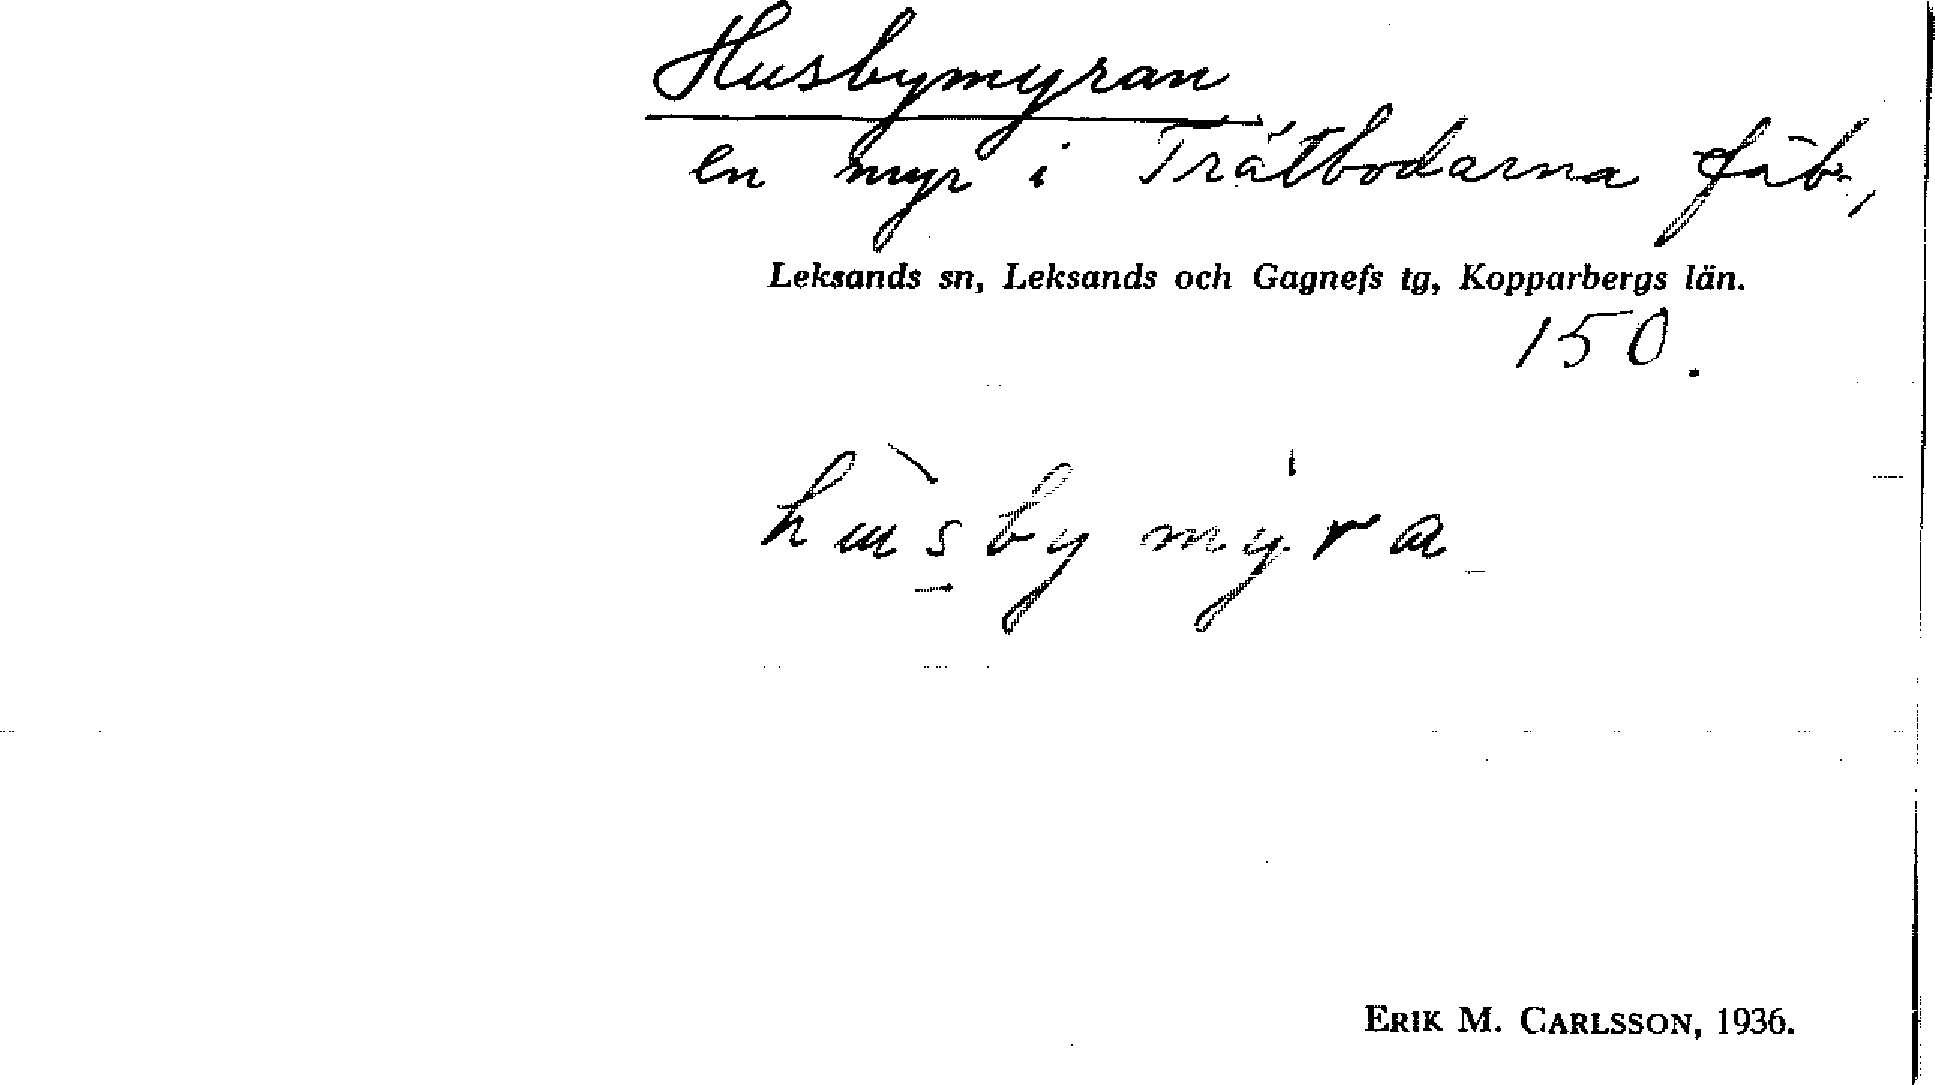 Husbymyran
en myr i Trätbodarna fäb.,
Leksands sn, Leksands och Gagnefs tg, Kopparbergs län.
150.
hùsbymy̍ra
ERIK M. CARLSSON, 1936.